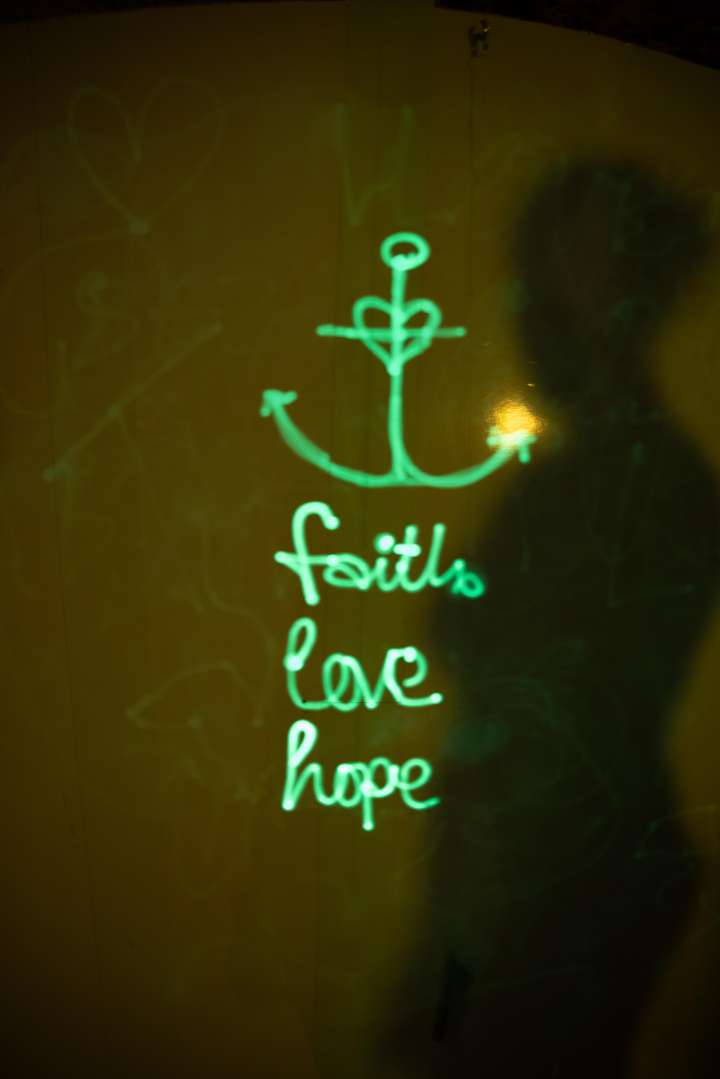 faith
love
hope